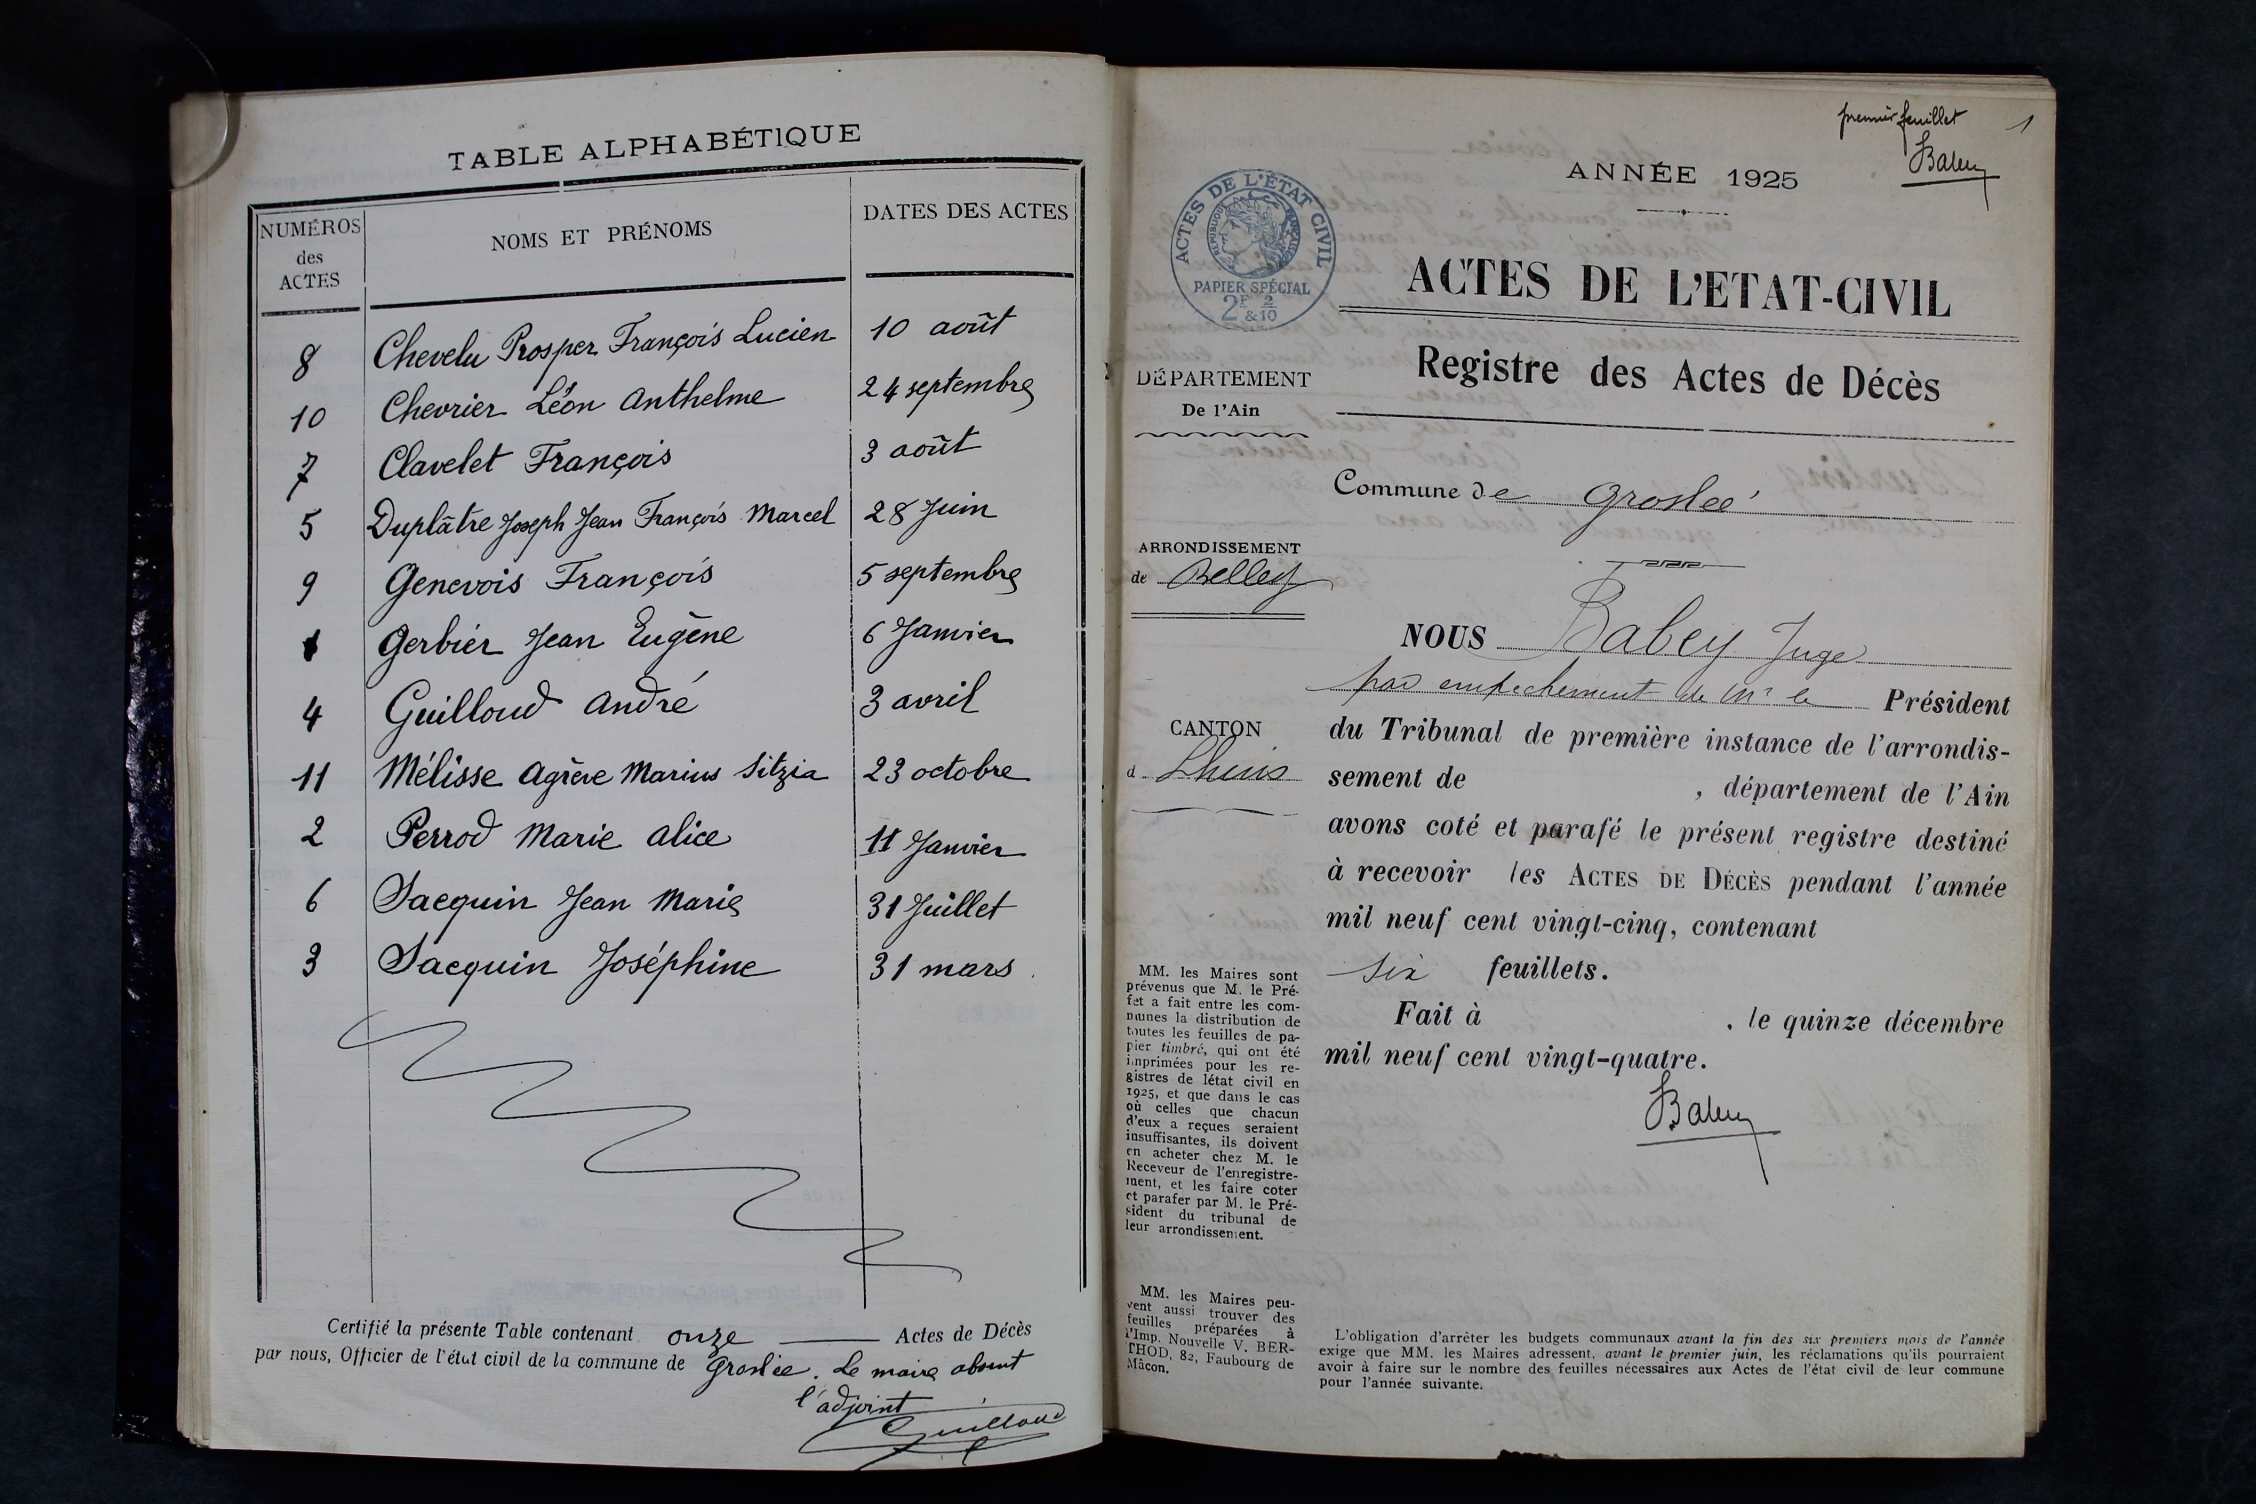 TABLE ALPHABÉTIQUE
NUMÉROS des ACTES
NOMS ET PRÉNOMS
DATES DES ACTES
8 Chevelu Prosper François Lucien 10 août
10 Chevrier Léon Anthelme 24 septembre
7 Clavelet François 3 août
5 Duplâtre Joseph Jean François Marcel 28 Juin
9 Genevois François 5 septembre
1 Gerbier Jean Eugène 6 Janvier
4 Guilloud André 3 avril
11 Mélisse Agrève Marius Sitzia 23 octobre
2 Perrod Marie Alice 11 Janvier
6 Sacquin Jean Marie 31 Juillet
3 Sacquin Joséphine 31 mars
Certifié la présente Table contenant onze Actes de Décès
par nous, Officier de l'état civil de la commune de Groslée. Le maire absent
l'adjoint
Guilloud
premier feuillet
1
Babey
ANNÉE 1925
ACTES DE L'ÉTAT CIVIL
RÉPUBLIQUE FRANÇAISE
PAPIER SPÉCIAL
2F & 2/10
ACTES DE L'ETAT-CIVIL
Registre des Actes de Décès
DÉPARTEMENT
De l'Ain
Commune de Groslée
ARRONDISSEMENT
de Belley
CANTON
d Lhuis
NOUS Babey Juge
par empêchement de Mr le Président
du Tribunal de première instance de l'arrondis-
sement de , département de l'Ain
avons coté et parafé le présent registre destiné
à recevoir les ACTES DE DÉCÈS pendant l'année
mil neuf cent vingt-cinq, contenant
six feuillets.
Fait à , le quinze décembre
mil neuf cent vingt-quatre.
Babey
MM. les Maires sont
prévenus que M. le Pré-
fet a fait entre les com-
munes la distribution de
toutes les feuilles de pa-
pier timbré, qui ont été
imprimées pour les re-
gistres de létat civil en
1925, et que dans le cas
où celles que chacun
d'eux a reçues seraient
insuffisantes, ils doivent
en acheter chez M. le
Receveur de l'enregistre-
ment, et les faire coter
et parafer par M. le Pré-
sident du tribunal de
leur arrondissement.
MM. les Maires peu-
vent aussi trouver des
feuilles préparées à
l'Imp. Nouvelle V. BER-
THOD, 82, Faubourg de
Mâcon.
L'obligation d'arrêter les budgets communaux avant la fin des six premiers mois de l'année
exige que MM. les Maires adressent, avant le premier juin, les réclamations qu'ils pourraient
avoir à faire sur le nombre des feuilles nécessaires aux Actes de l'état civil de leur commune
pour l'année suivante.